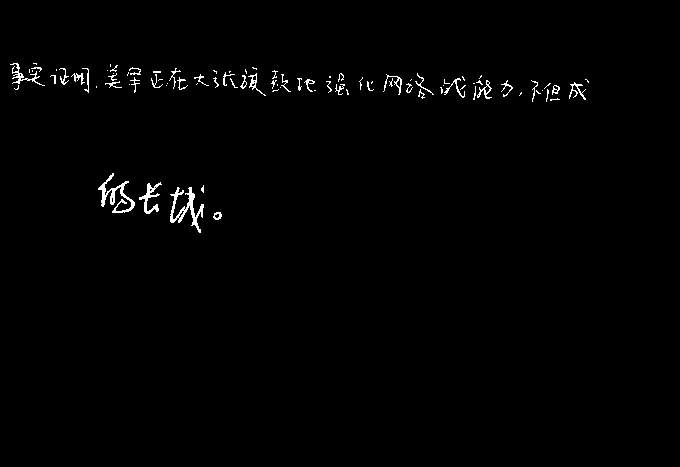 事实证明，美军正在大张旗鼓地强化网络战能力，不但成
的长城。